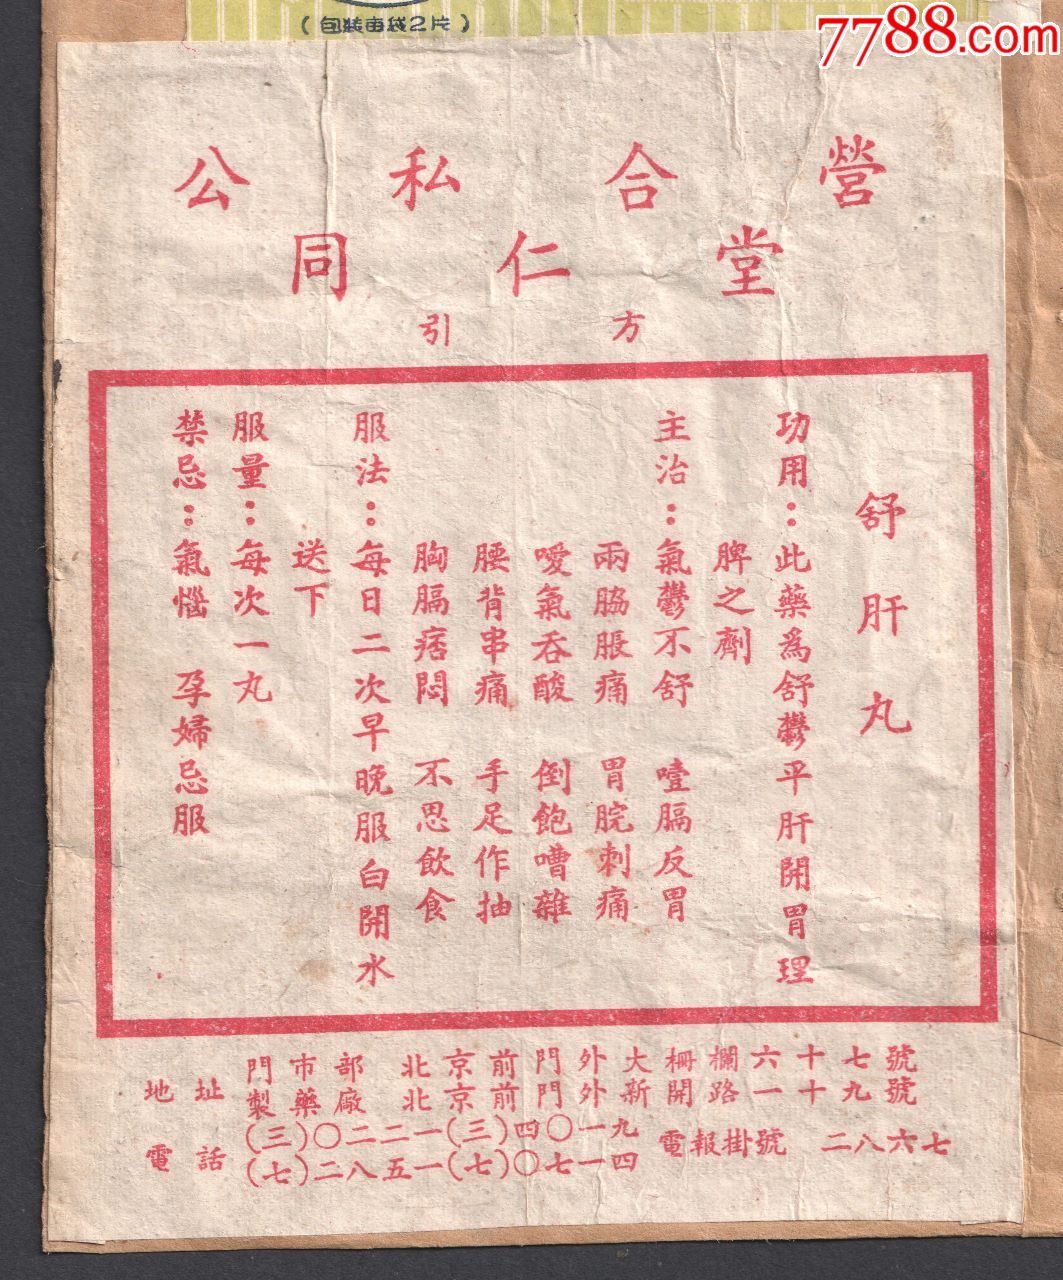 (包裝每袋2片)
7788.com
公私合營
同仁堂
引方
舒肝丸
功用：此藥為舒鬱平肝開胃理
脾之劑
主治：氣鬱不舒 噎膈反胃
兩脇脹痛 胃脘刺痛
噯氣吞酸 倒飽嘈雜
腰背串痛 手足作抽
胸膈痞悶 不思飲食
服法：每日二次早晚服白開水
送下
服量：每次一丸
禁忌：氣惱 孕婦忌服
地址 門市部 北京前門外大柵欄六十七號
製藥廠 北京前門外新開路一十九號
電話 (三)〇二二一(三)四〇一九 電報掛號 二八六七
(七)二八五一(七)〇七一四